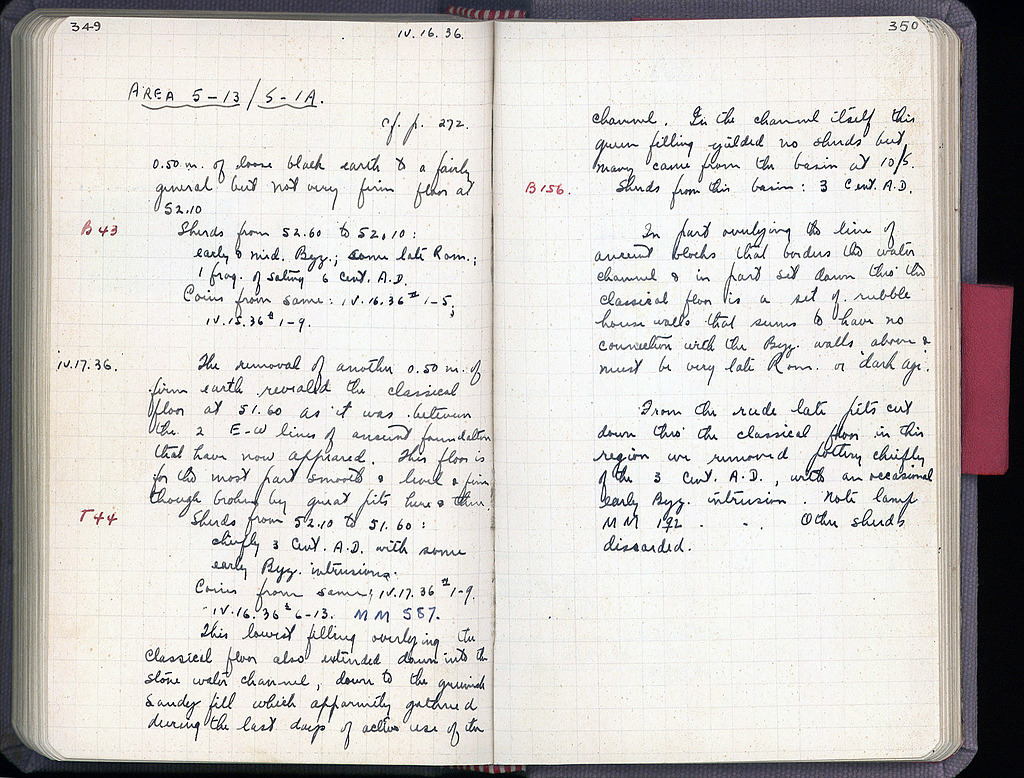 349
IV.16.36.
AREA 5-13/5-1A.
cf. p. 272.
0.50 m. of loose black earth to a fairly
general but not very firm floor at
52.10
B 43 Sherds from 52.60 to 52.10:
early & mid. Byz.; some late Rom.;
1 frag. of 6 Cent. A.D.
Coins from same: IV.16.36 1-5;
IV.15.36 1-9.
IV.17.36. The removal of another 0.50 m. of
firm earth revealed the classical
floor at 51.60 as it was between
the 2 E-W lines of ancient foundation
that have now appeared. This floor is
for the most part smooth & level & firm
though broken by great pits here & there.
T 44 Sherds from 52.10 to 51.60:
chiefly 3 Cent. A.D. with some
early Byz. intrusions.
Coins from same: IV.17.36 1-9.
IV.16.36 6-13. MM 587.
This lowest filling overlying the
classical floor also extended down into the
stone water channel, down to the greenish
sandy fill which apparently gathered
during the last days of active use of the
350
channel. In the channel itself this
green filling yielded no sherds but
many came from the basin at 10/5.
B 156. Sherds from this basin: 3 Cent. A.D.
In part overlying the line of
ancient blocks that borders the water
channel & in part set down thro' the
classical floor is a set of rubble
house walls that seems to have no
connection with the Byz. walls above &
must be very late Rom. or 'dark age'.
From the rude late pits cut
down thro' the classical floor in this
region we removed pottery chiefly
of the 3 Cent. A.D., with an occasional
early Byz. intrusion. Note lamp
MM 192 . - . Other sherds
discarded.